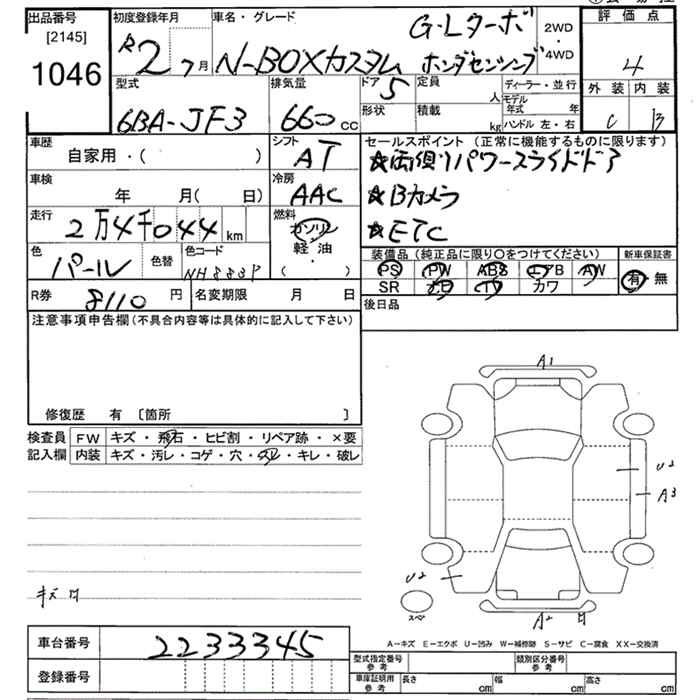 出品番号 [2145] 1046
初度登録年月 R2 7月
車名・グレード N-BOXカスタム G・Lターボ ホンダセンシング
2WD・4WD
評価点 4
外装 C 内装 B
型式 6BA-JF3
排気量 660 cc
ドア 5
形状
定員 人
積載 kg
ディーラー・並行
モデル年式 年
ハンドル 左・右
車歴 自家用・( )
シフト AT
セールスポイント (正常に機能するものに限ります)
☆両側パワースライドドア
☆Bカメラ
☆ETC
車検 年 月( 日)
冷房 AAC
走行 2万4千044 km
燃料 ガソリン・軽・油 ( )
色 パール 色替
色コード NH883P
装備品 (純正品に限り○をつけてください)
PS PW ABS エアB AW
SR ナビ TV カワ
新車保証書 有・無
R券 8110 円
名変期限 月 日
後日品
注意事項申告欄 (不具合内容等は具体的に記入して下さい)
修復歴 有 〔箇所 〕
検査員記入欄
FW キズ・飛石・ヒビ割・リペア跡・×要
内装 キズ・汚レ・コゲ・穴・スレ・キレ・破レ
A1
U2
A3
U2
A2
スペア
キズ
A-キズ E-エクボ U-凹み W-補修跡 S-サビ C-腐食 XX-交換済
車台番号 2233345
登録番号
型式指定番号 参考
類別区分番号 参考
車庫証明用 参考 長さ cm 幅 cm 高さ cm